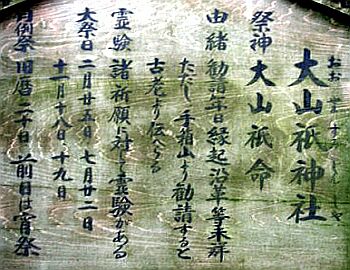 おお やま ずみ じん じゃ
大山祇神社
祭神 大山祇命
由緒 勧請年日縁起沿革等未詳
ただし手箱山より勧請すると
古老より伝へらる
霊験 諸祈願に対し霊験がある
大祭日 二月廿五日 七月廿二日
十一月十八日、十九日
月例祭 旧暦二十日 前日は宵祭